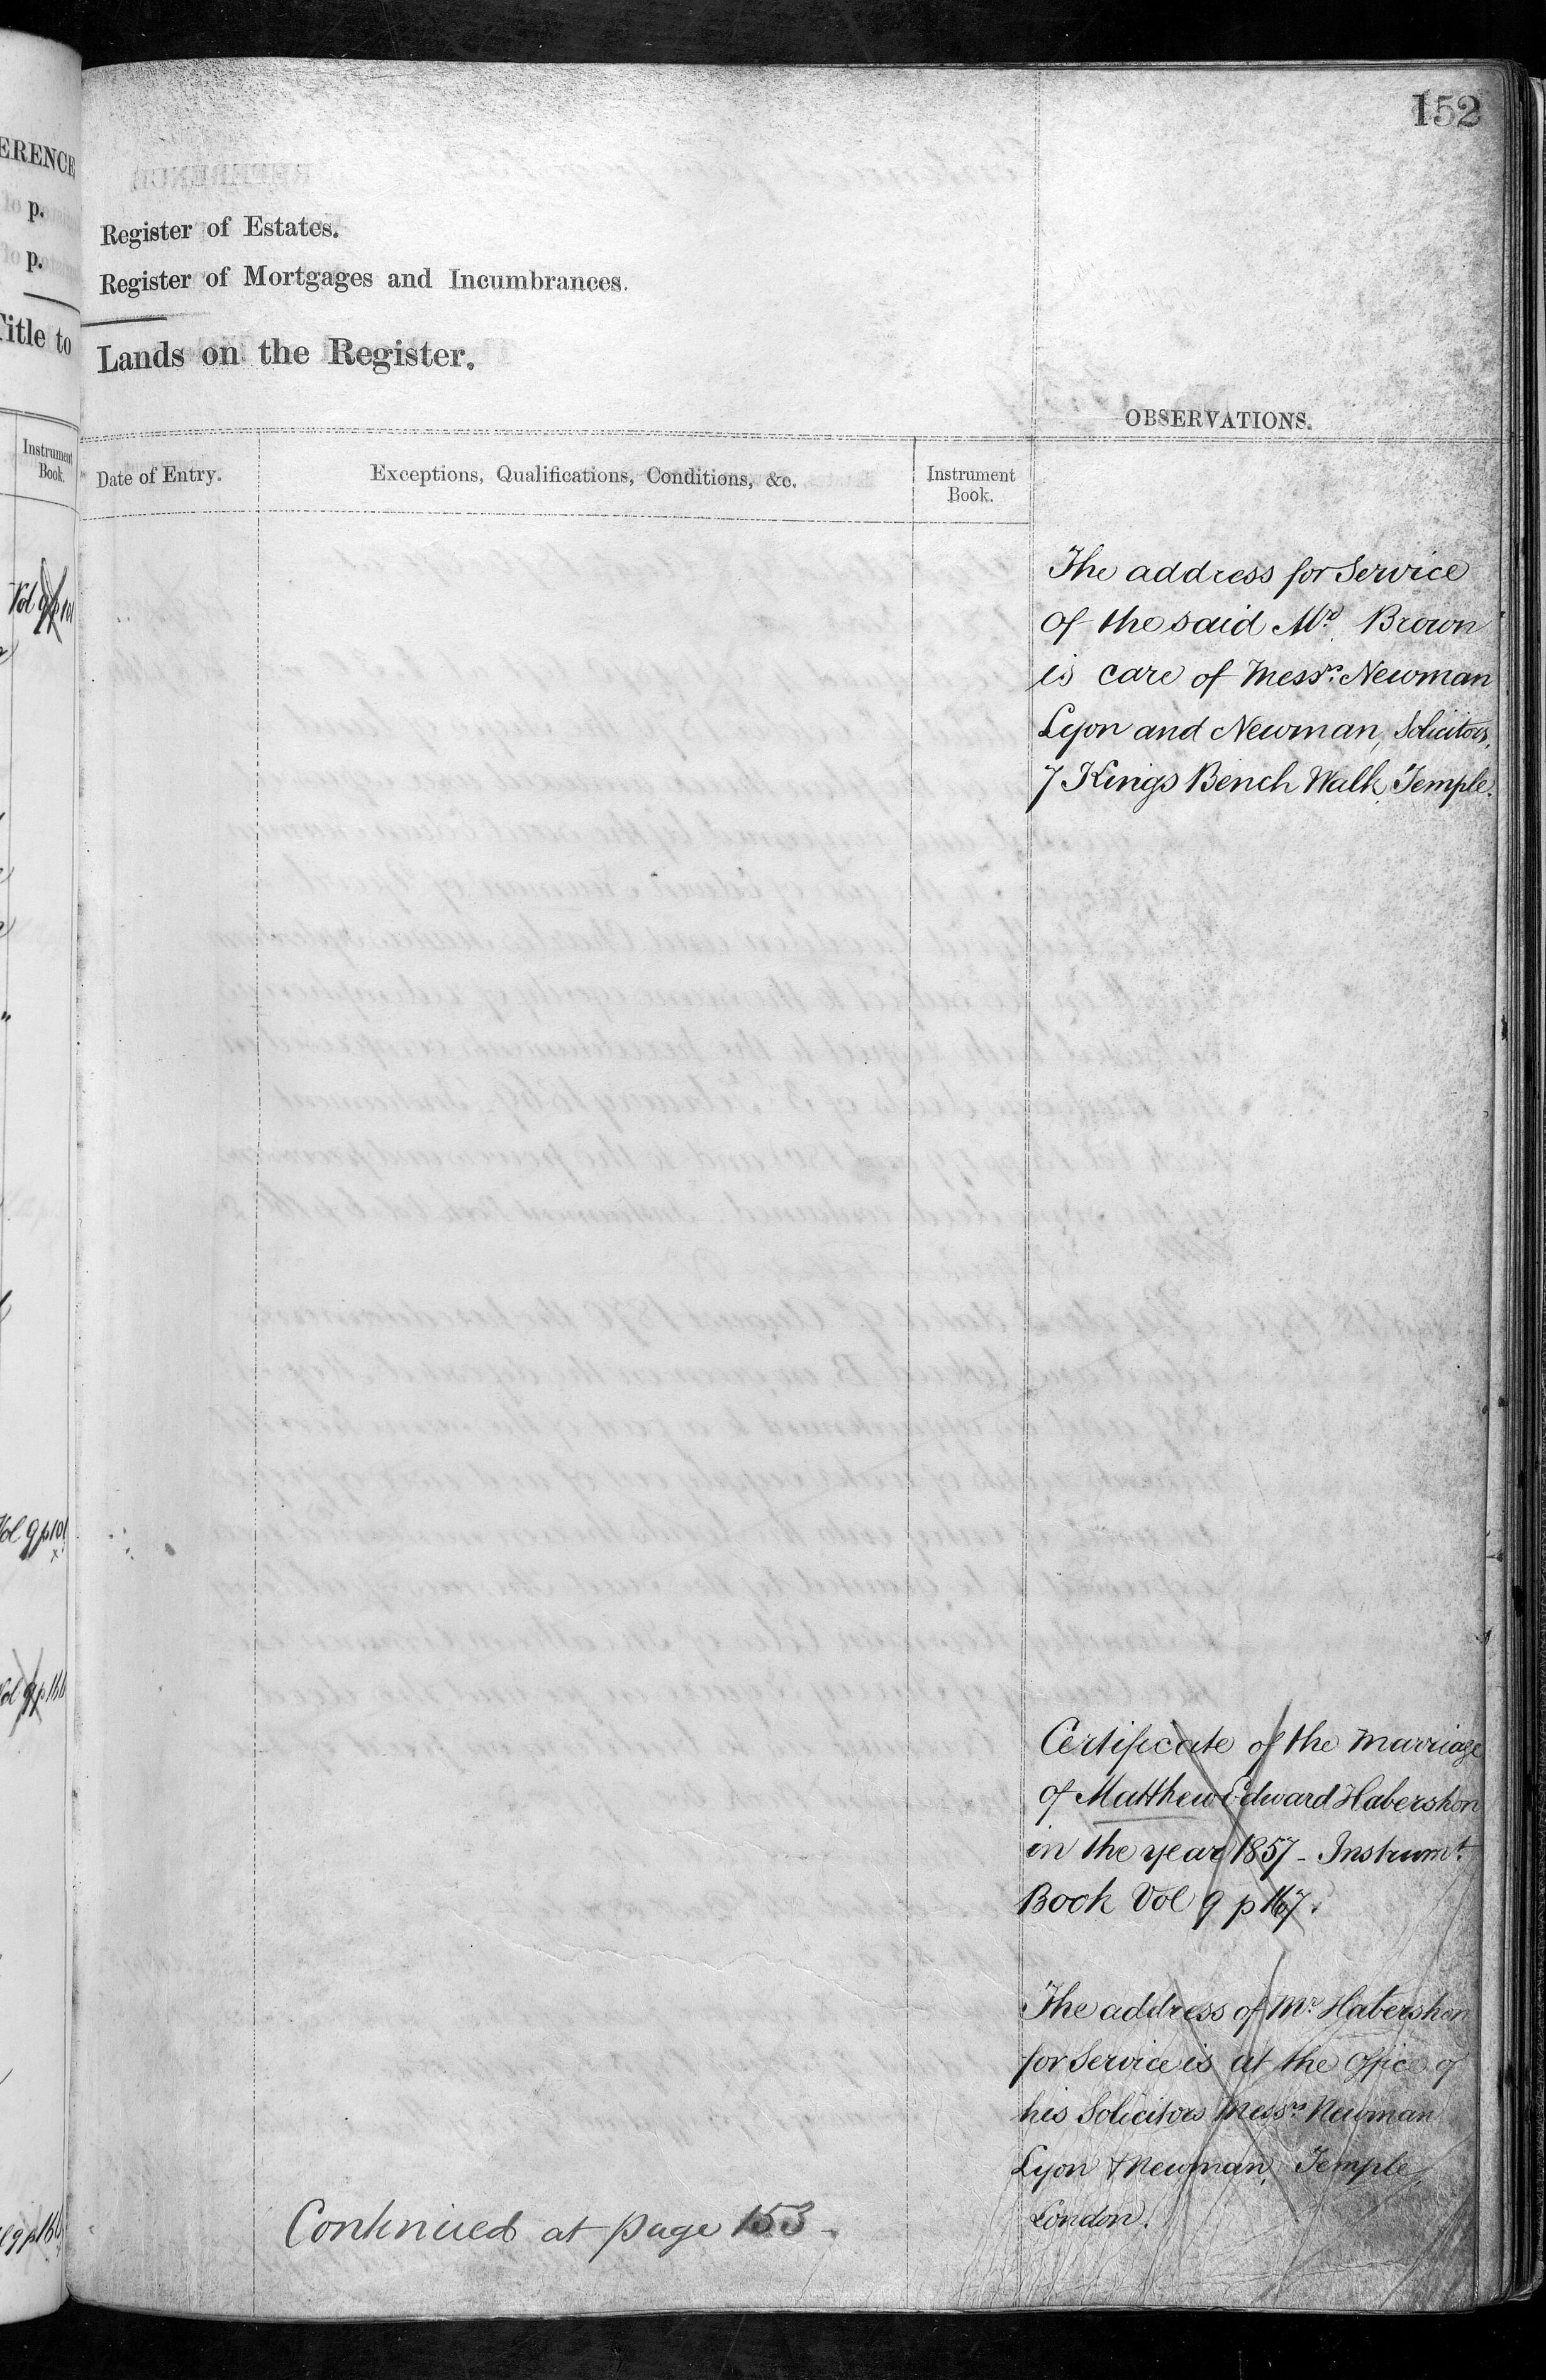 152
ERENCE
p.
p.
Title to
Instrument
Book.
Vol 9 p 101
Vol 9 p 101
Vol 9 p 166
Register of Estates.
Register of Mortgages and Incumbrances.
Lands on the Register.
OBSERVATIONS.
Date of Entry.
Exceptions, Qualifications, Conditions, &c.
Instrument
Book.
The address for Service
of the said Mr. Brown
is care of Messrs. Newman
Lyon and Newman, Solicitors,
7 Kings Bench Walk, Temple.
Certificate of the marriage
of Matthew Edward Habershon
in the year 1857 - Instrumt.
Book Vol 9 p 167.
The address of Mr Habershon
for Service is at the Office of
his Solicitors Messrs. Newman
Lyon & Newman, Temple,
London.
Continued at page 153 -